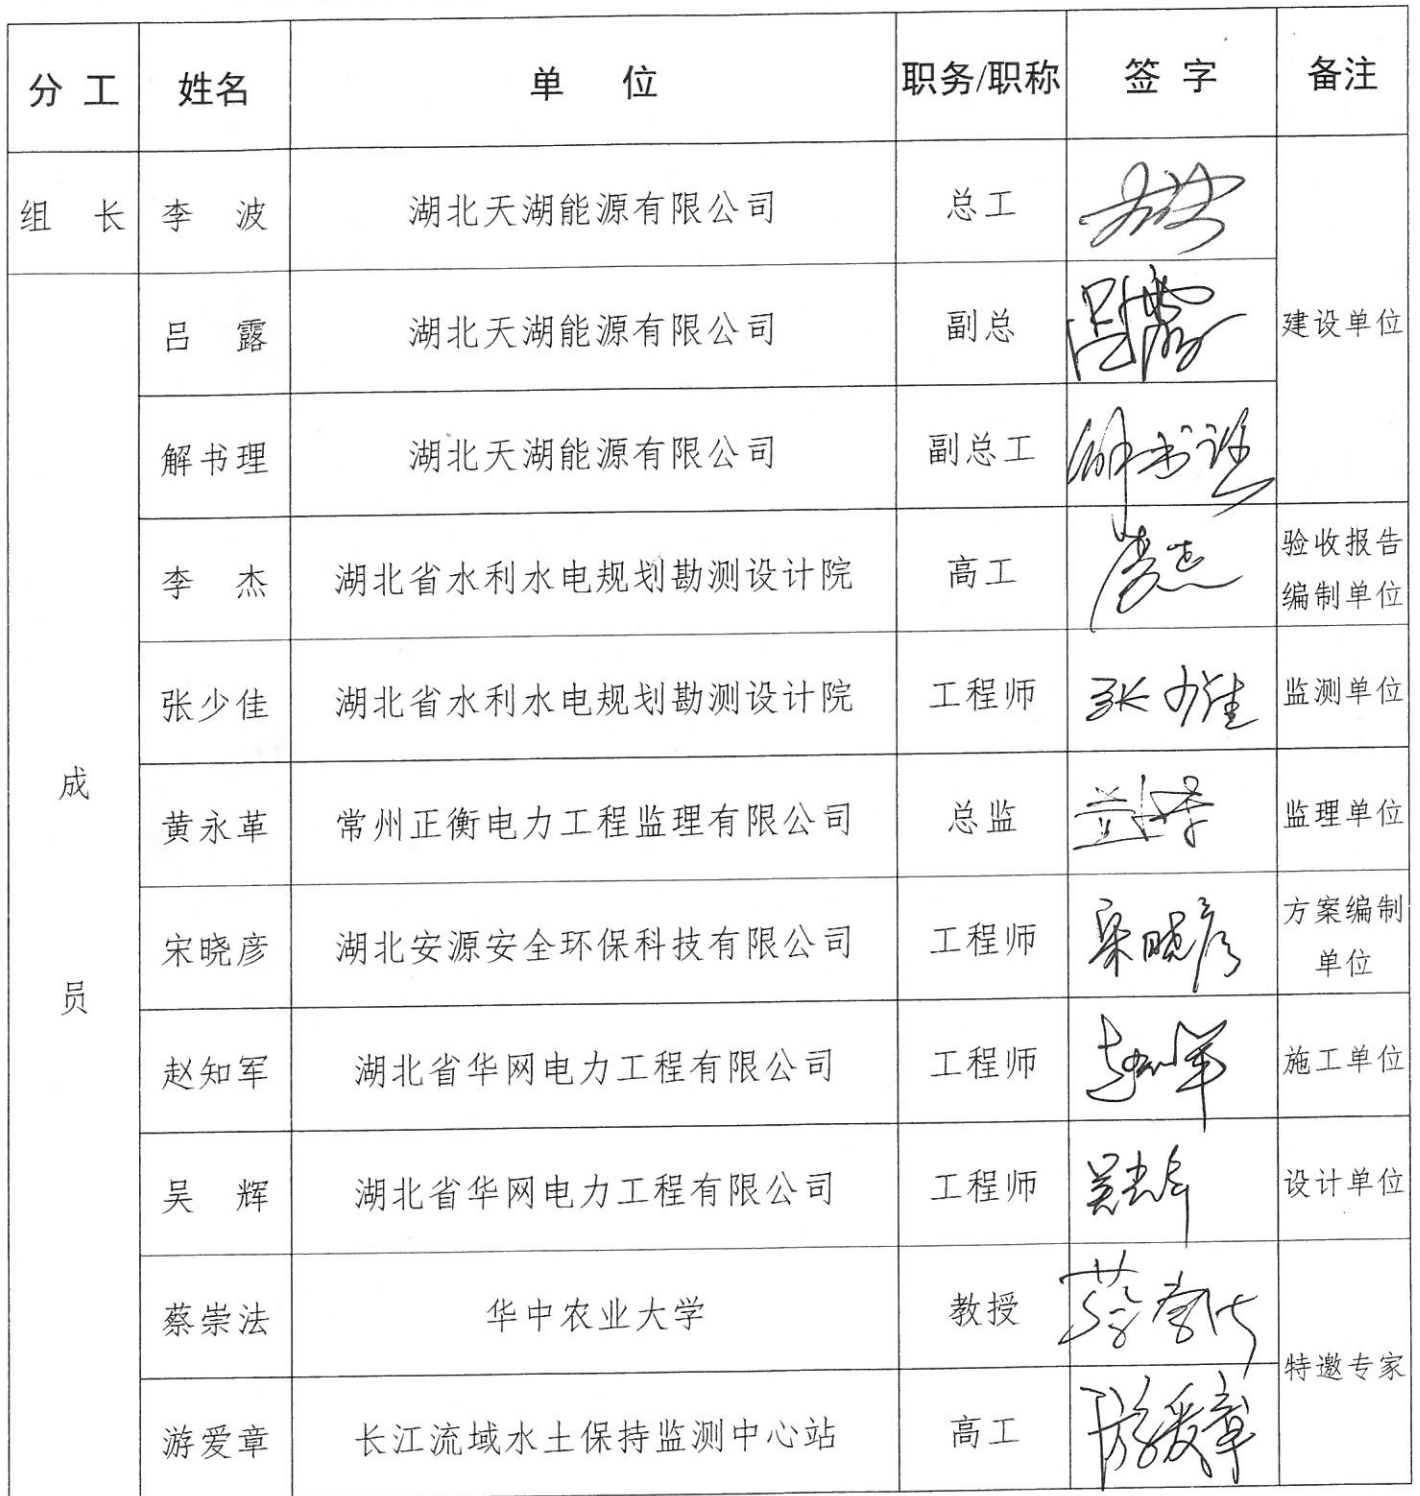 分工 姓名 单位 职务/职称 签字 备注
组长 李波 湖北天湖能源有限公司 总工
吕露 湖北天湖能源有限公司 副总 吕露 建设单位
解书理 湖北天湖能源有限公司 副总工 解书理
李杰 湖北省水利水电规划勘测设计院 高工 李杰 验收报告
编制单位
张少佳 湖北省水利水电规划勘测设计院 工程师 张少佳 监测单位
成
黄永革 常州正衡电力工程监理有限公司 总监 监理单位
宋晓彦 湖北安源安全环保科技有限公司 工程师 宋晓彦 方案编制
单位
员
赵知军 湖北省华网电力工程有限公司 工程师 赵知军 施工单位
吴辉 湖北省华网电力工程有限公司 工程师 吴辉 设计单位
蔡崇法 华中农业大学 教授 蔡崇法 特邀专家
游爱章 长江流域水土保持监测中心站 高工 游爱章